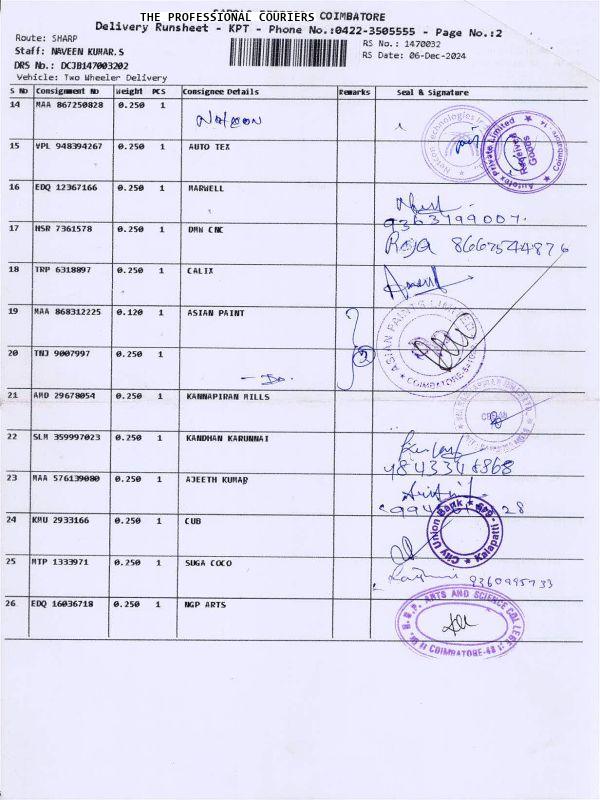 THE PROFESSIONAL COURIERS COIMBATORE
Delivery Runsheet - KPT - Phone No.:0422-3505555 - Page No.:2
Route: SHARP
RS No.: 1470032
Staff: NAVEEN KUMAR.S
RS Date: 06-Dec-2024
DRS No.: DCJB147003202
Vehicle: Two Wheeler Delivery
S No Consignment No Weight PCS Consignee Details Remarks Seal & Signature
14 MAA 867250828 0.250 1
15 VPL 948394267 0.250 1 AUTO TEX
Autotex Private Limited Coimbatore
Received Goods
16 EDQ 12367166 0.250 1 MARWELL
9363199007.
17 HSR 7361578 0.250 1 DMW CNC
Roja 8667544876
18 TRP 6318897 0.250 1 CALIX
19 MAA 868312225 0.120 1 ASIAN PAINT
ASIAN PAINTS LIMITED
COIMBATORE
20 TNJ 9007997 0.250 1
- Do.
2
21 AMD 29678054 0.250 1 KANNAPIRAN MILLS
22 SLM 359997023 0.250 1 KANDHAN KARUNNAI
23 MAA 576139080 0.250 1 AJEETH KUMAR
24 KMU 2933166 0.250 1 CUB
City Union Bank Kalapatti
25 MTP 1333971 0.250 1 SUGA COCO
26 EDQ 16036718 0.250 1 NGP ARTS
Dr. N.G.P. ARTS AND SCIENCE COLLEGE
COIMBATORE-48